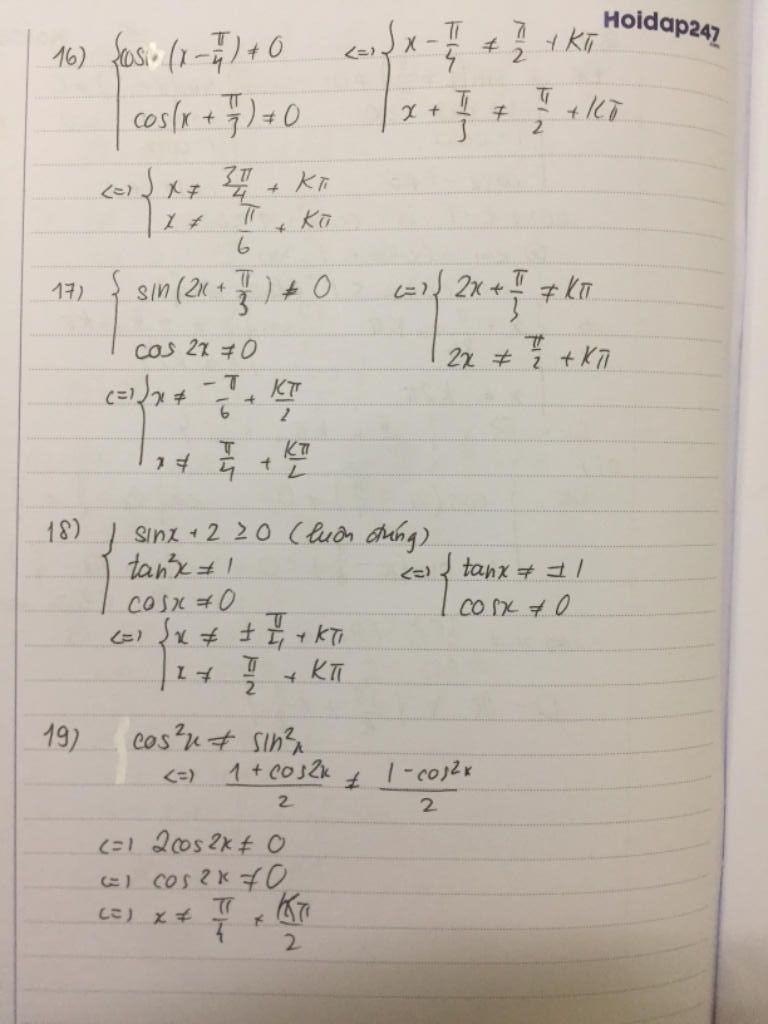 Hoidap247
16) { cos(x - π/4) ≠ 0 <=> { x - π/4 ≠ π/2 + Kπ
cos(x + π/3) ≠ 0 x + π/3 ≠ π/2 + Kπ
<=> { x ≠ 3π/4 + Kπ
x ≠ π/6 + Kπ
17) { sin(2x + π/3) ≠ 0 <=> { 2x + π/3 ≠ Kπ
cos 2x ≠ 0 2x ≠ π/2 + Kπ
<=> { x ≠ -π/6 + Kπ/2
x ≠ π/4 + Kπ/2
18) { sinx + 2 ≥ 0 (luôn đúng)
tan²x ≠ 1 <=> { tanx ≠ ±1
cosx ≠ 0 cosx ≠ 0
<=> { x ≠ ± π/4 + Kπ
x ≠ π/2 + Kπ
19) cos²x ≠ sin²x
<=> (1 + cos2x)/2 ≠ (1 - cos2x)/2
<=> 2cos2x ≠ 0
<=> cos2x ≠ 0
<=> x ≠ π/4 + Kπ/2